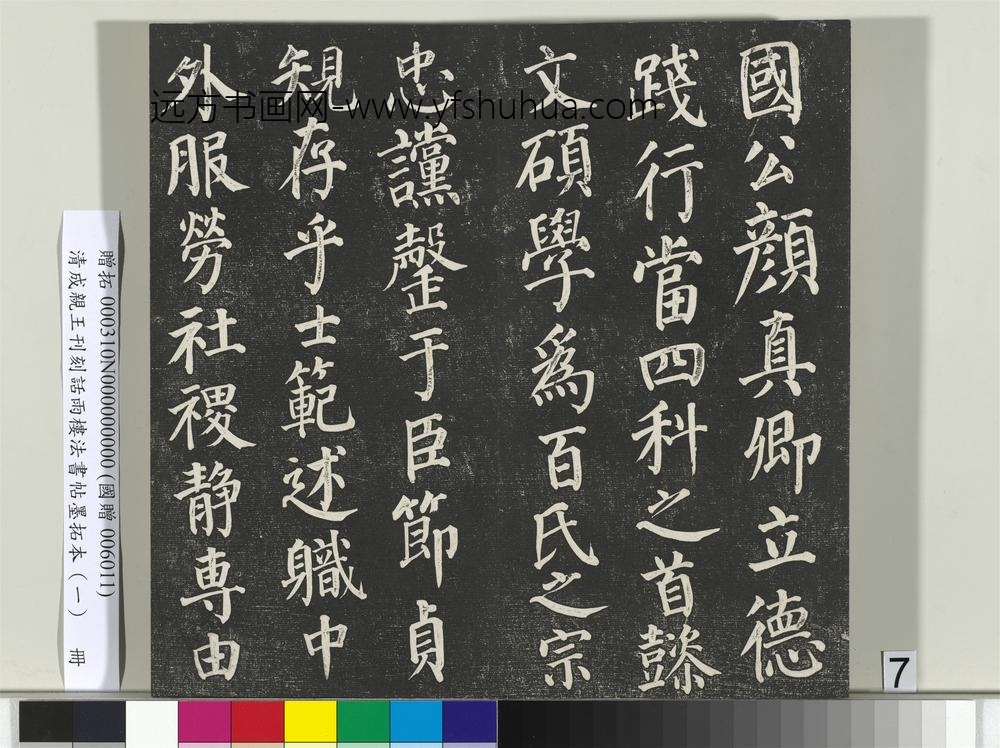 國公顏真卿立德
踐行當四科之首懿
文碩學為百氏之宗
忠讜罄于臣節貞
規存乎士範述職中
外服勞社稷静専由
远方书画网-www.yfshuhua.com
贈拓 000310N000000000 (國贈 006011)
清成親王刊刻話雨樓法書帖墨拓本（一） 冊
7